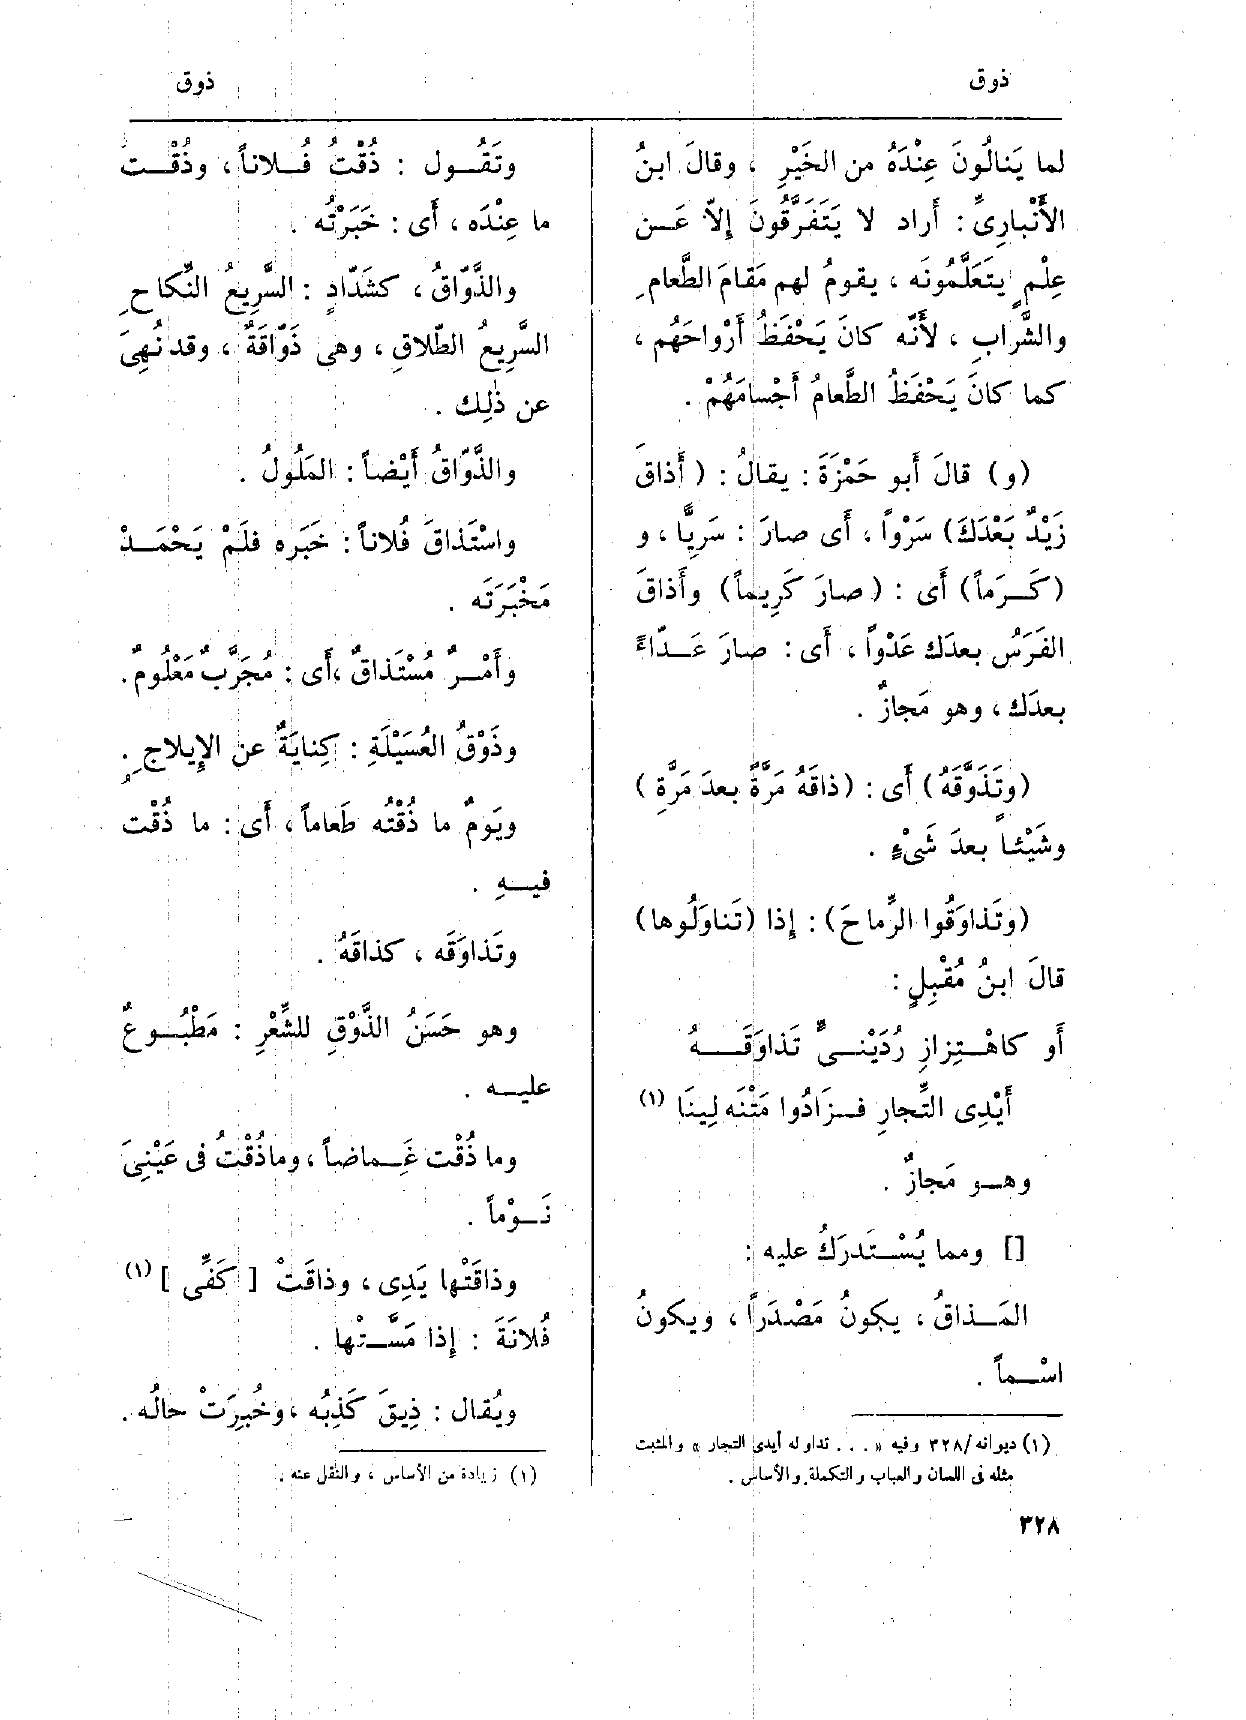 ذوق
ذوق
لما يَنالُونَ عِنْدَهُ من الخَيْرِ ، وقالَ ابنُ
الأَنْبارِىِّ : أَراد لا يَتَفَرَّقُونَ إِلاّ عَــن
عِلْمٍ يتَعَلَّمُونَه ، يقومُ لهم مَقامَ الطَّعامِ
والشَّرابِ ، لأَنَّه كانَ يَحْفَظُ أَرْواحَهُم ،
كما كانَ يَحْفَظُ الطَّعامُ أَجْسامَهُمْ .
(و) قالَ أَبو حَمْزَةَ : يقالُ : (أَذاقَ
زَيْدٌ بَعْدَكَ) سَرْواً ، أَى صارَ : سَرِيًّا ، و
(كَــرَماً) أَى : (صارَ كَرِيماً) وأَذاقَ
الفَرَسُ بعدَك عَدْواً ، أَى : صارَ عَــدّاءً
بعدَك ، وهو مَجازٌ .
(وتَذَوَّقَهُ) أَى : (ذاقَهُ مَرَّةً بعدَ مَرَّةٍ)
وشَيْئــا بعدَ شَىْءٍ .
(وتَذاوَقُوا الرِّماحَ) : إِذا (تَناوَلُوها)
قالَ ابنُ مُقْبِلٍ :
أَو كاهْــتِزازِ رُدَيْنــىٍّ تَذاوَقَــــهُ
أَيْدِى التِّجارِ فــزَادُوا مَتْنَه لِينَا (١)
وهــو مَجازٌ .
[] ومما يُسْــتَدرَكُ عليه :
المَــذاقُ ، يكونُ مَصْدَراً ، ويكونُ
اسْــماً .
(١) ديوانه/٣٢٨ وفيه « . . . تداوله أيدى التجار » والمثبت
مثله فى اللسان والعباب والتكملة والأساس .
٣٢٨
وتَقُــول : ذُقْتُ فُــلاناً ، وذُقْــت
ما عِنْدَه ، أَى : خَبَرْتُه .
والذَّوّاقُ ، كشَدّادٍ : السَّرِيعُ النِّكاحِ
السَّرِيعُ الطّلاقِ ، وهى ذَوّاقَةٌ ، وقد نُهِىَ
عن ذٰلِك .
والذَّوّاقُ أَيْضاً : المَلُولُ .
واسْتَذاقَ فُلاناً : خَبَره فلَمْ يَحْمَــدْ
مَخْبَرَتَه .
وأَمْــرٌ مُسْتَذاقٌ ،أَى : مُجَرَّبٌ مَعْلُوم.
وذَوْقُ العُسَيْلَةِ : كِنايَةٌ عن الإِيلاجِ .
ويَومٌ ما ذُقْتُه طَعاماً ، أَى : ما ذُقْت
فيــهِ .
وتَذاوَقَه ، كذاقَهُ .
وهو حَسَنُ الذَّوْقِ للشِّعْرِ : مَطْبُــوعٌ
عليــه .
وما ذُقْت غَــماضاً ، وماذُقْتُ فى عَيْنِىَ
نَــوْماً .
وذاقَتْها يَدِى ، وذاقَتْ [ كَفِّى ] (١)
فُلانَةَ : إِذا مَسَّــتْها .
ويُقال : ذِيقَ كَذِبُه ، وخُبِرَتْ حالُه .
(١) زيادة من الأساس ، والنقل عنه .